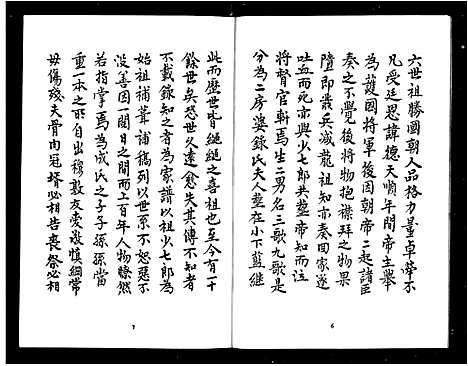 六世祖勝國朝人品格力量卓犖不
凡受廷恩諱德天順年間帝主舉
為護國將軍後因朝帝二起諸臣
奏之不覺後物抱襟拜之物果
墮即叢兵滅龍祖知亦奏回家遂
吐血而死亦與少七郎共塟帝知而泣
將督官斬焉生二男名三歌九歌是
分為二房婆錄氏夫人塟在小下藍継
6
此而歷世皆継縋之喜祖也至今有一十
餘世矣恐世久遠愈失其傳不知者
不載錄知之者為家譜以祖少七郎為
始祖補葺譜稿列以世系不怒惡不
没善因一閱日之間而上百年人物瞭然
若指掌焉為成氏之子子孫孫當
重一本之所自出穆敦友愛敬慎綱常
毋傷殘夫骨肉冠婚必相告喪祭必相
7